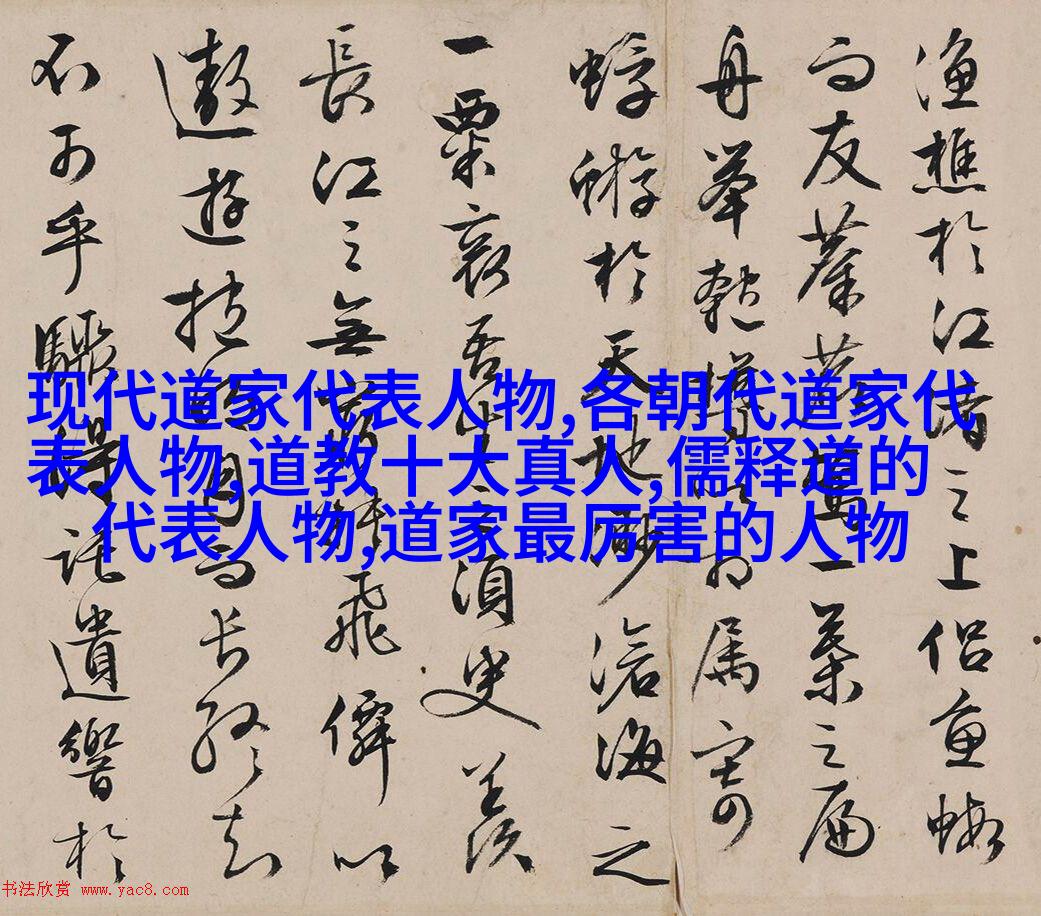 漁樵於江渚之上侣魚蝦
而友麋鹿駕一葉之扁
舟舉匏樽以相属寄
蜉蝣於天地渺滄海之
一粟哀吾生之須臾羨
長江之無窮挾飛僊以
遨遊抱明月而長終知
不可乎驟得託遺響於
现代道家代表人物,各朝代道家代
表人物,道教十大真人,儒释道的
代表人物,道家最厉害的人物
书法欣赏 www.yac8.com